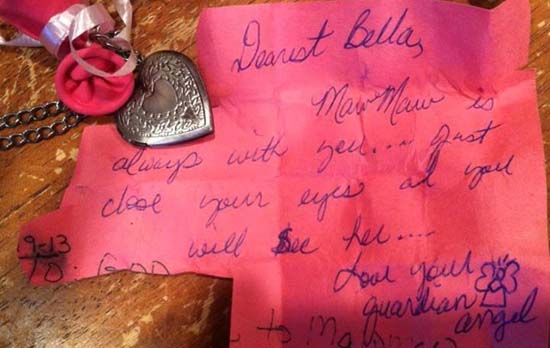 Dearest Bella,
MawMaw is
always with you.... Just
close your eyes ad you
will See her....
Love your
guardian
angel
9-13
10. GOD
to